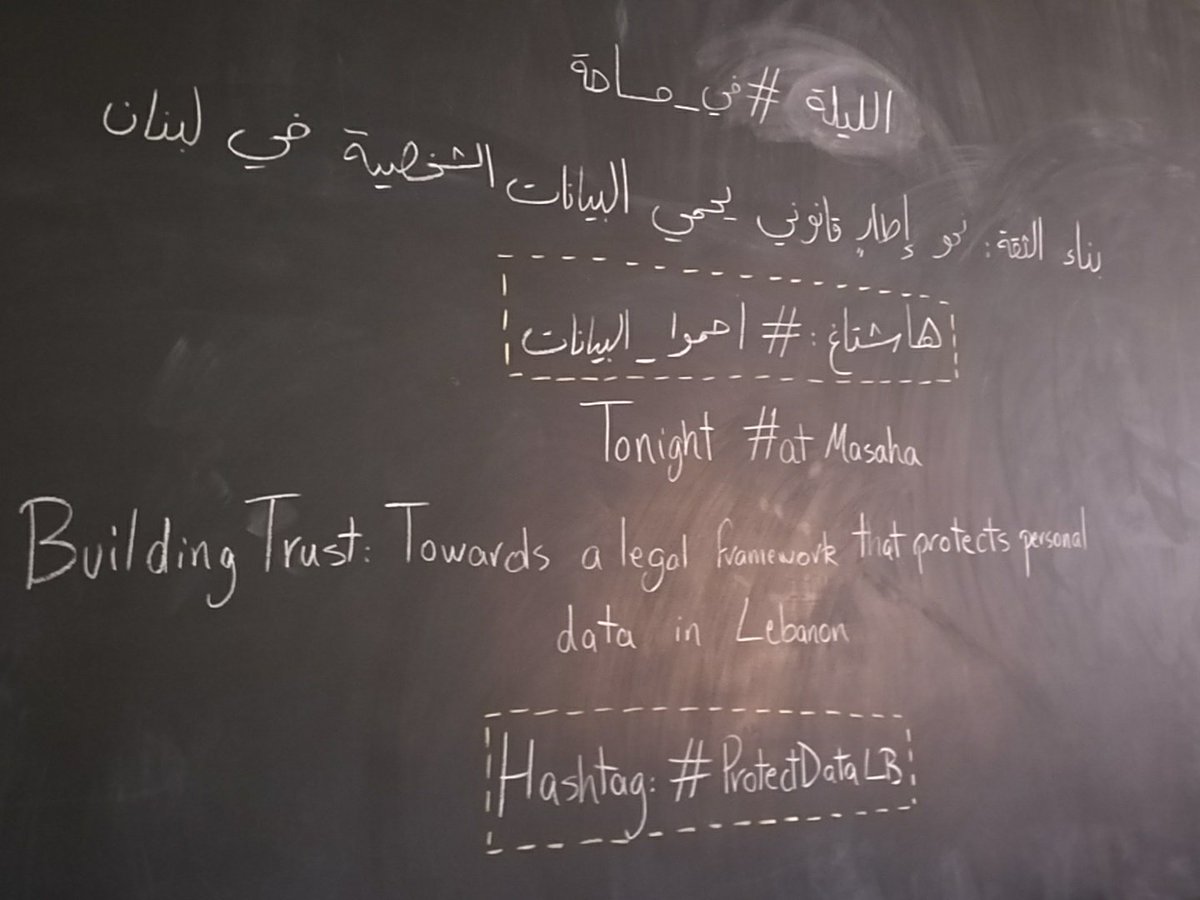 الليلة #في_مساحة
بناء الثقة: نحو إطارٍ قانوني يحمي البيانات الشخصية في لبنان
هاشتاغ: #احموا_البيانات
Tonight #at Masaha
Building Trust: Towards a legal framework that protects personal
data in Lebanon
Hashtag: #ProtectDataLB